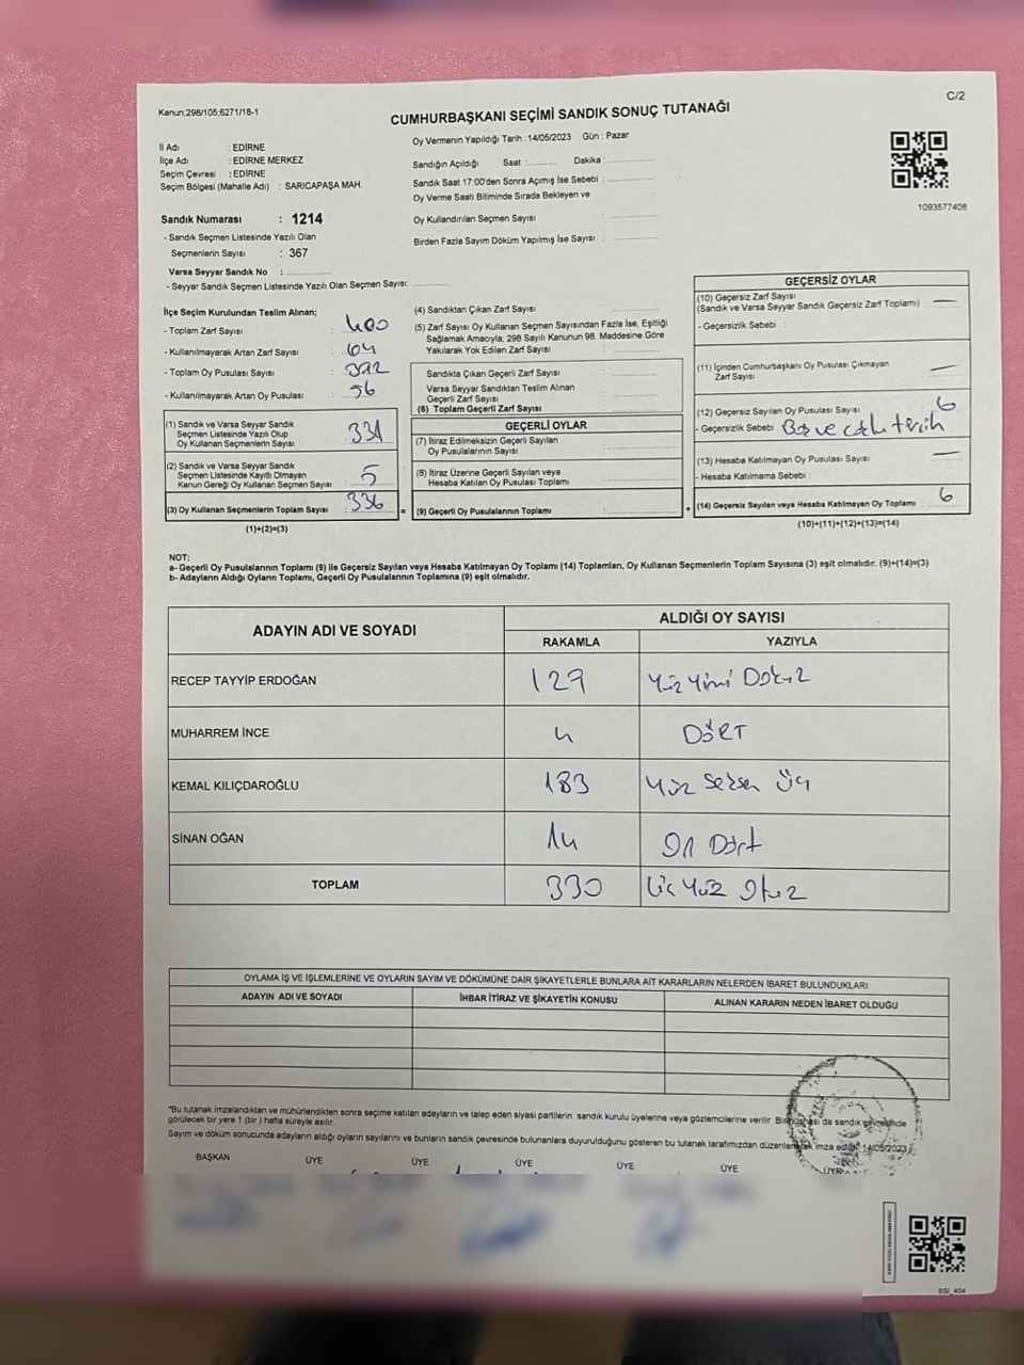 Kanun;298/105;6271/18-1
C/2
CUMHURBAŞKANI SEÇİMİ SANDIK SONUÇ TUTANAĞI
Oy Vermenin Yapıldığı Tarih : 14/05/2023 Gün : Pazar
İl Adı : EDİRNE
İlçe Adı : EDİRNE MERKEZ
Seçim Çevresi : EDİRNE
Seçim Bölgesi (Mahalle Adı) : SARICAPAŞA MAH.
Sandığın Açıldığı Saat : Dakika :
Sandık Saat 17:00'den Sonra Açılmış İse Sebebi :
Oy Verme Saati Bitiminde Sırada Bekleyen ve
Oy Kullandırılan Seçmen Sayısı :
Birden Fazla Sayım Döküm Yapılmış İse Sayısı :
1093577408
Sandık Numarası : 1214
- Sandık Seçmen Listesinde Yazılı Olan
Seçmenlerin Sayısı : 367
Varsa Seyyar Sandık No :
- Seyyar Sandık Seçmen Listesinde Yazılı Olan Seçmen Sayısı:
İlçe Seçim Kurulundan Teslim Alınan;
- Toplam Zarf Sayısı : 400
- Kullanılmayarak Artan Zarf Sayısı : 64
- Toplam Oy Pusulası Sayısı : 392
- Kullanılmayarak Artan Oy Pusulası : 56
(1) Sandık ve Varsa Seyyar Sandık
Seçmen Listesinde Yazılı Olup
Oy Kullanan Seçmenlerin Sayısı : 331
(2) Sandık ve Varsa Seyyar Sandık
Seçmen Listesinde Kayıtlı Olmayan
Kanun Gereği Oy Kullanan Seçmen Sayısı : 5
(3) Oy Kullanan Seçmenlerin Toplam Sayısı : 336
(1)+(2)=(3)
(4) Sandıktan Çıkan Zarf Sayısı :
(5) Zarf Sayısı Oy Kullanan Seçmen Sayısından Fazla İse, Eşitliği
Sağlamak Amacıyla, 298 Sayılı Kanunun 98. Maddesine Göre
Yakılarak Yok Edilen Zarf Sayısı :
Sandıkta Çıkan Geçerli Zarf Sayısı :
Varsa Seyyar Sandıktan Teslim Alınan
Geçerli Zarf Sayısı :
(6) Toplam Geçerli Zarf Sayısı :
GEÇERLİ OYLAR
(7) İtiraz Edilmeksizin Geçerli Sayılan
Oy Pusulalarının Sayısı :
(8) İtiraz Üzerine Geçerli Sayılan veya
Hesaba Katılan Oy Pusulası Toplamı :
= (9) Geçerli Oy Pusulalarının Toplamı :
GEÇERSİZ OYLAR
(10) Geçersiz Zarf Sayısı :
(Sandık ve Varsa Seyyar Sandık Geçersiz Zarf Toplamı) —
- Geçersizlik Sebebi :
(11) İçinden Cumhurbaşkanı Oy Pusulası Çıkmayan
Zarf Sayısı : —
(12) Geçersiz Sayılan Oy Pusulası Sayısı : 6
- Geçersizlik Sebebi : Boş ve çoklu tercih
(13) Hesaba Katılmayan Oy Pusulası Sayısı : —
- Hesaba Katılmama Sebebi :
+ (14) Geçersiz Sayılan veya Hesaba Katılmayan Oy Toplamı : 6
(10)+(11)+(12)+(13)=(14)
NOT:
a- Geçerli Oy Pusulalarının Toplamı (9) ile Geçersiz Sayılan veya Hesaba Katılmayan Oy Toplamı (14) Toplamları, Oy Kullanan Seçmenlerin Toplam Sayısına (3) eşit olmalıdır. (9)+(14)=(3)
b- Adayların Aldığı Oyların Toplamı, Geçerli Oy Pusulalarının Toplamına (9) eşit olmalıdır.
ADAYIN ADI VE SOYADI ALDIĞI OY SAYISI
RAKAMLA YAZIYLA
RECEP TAYYİP ERDOĞAN 129 Yüz Yirmi Dokuz
MUHARREM İNCE 4 DÖRT
KEMAL KILIÇDAROĞLU 183 Yüz Seksen Üç
SİNAN OĞAN 14 On Dört
TOPLAM 330 Üç Yüz Otuz
OYLAMA İŞ VE İŞLEMLERİNE VE OYLARIN SAYIM VE DÖKÜMÜNE DAİR ŞİKAYETLERLE BUNLARA AİT KARARLARIN NELERDEN İBARET BULUNDUKLARI
ADAYIN ADI VE SOYADI İHBAR İTİRAZ VE ŞİKAYETİN KONUSU ALINAN KARARIN NEDEN İBARET OLDUĞU
"Bu tutanak imzalandıktan ve mühürlendikten sonra seçime katılan adayların ve talep eden siyasi partilerin sandık kurulu üyelerine veya gözlemcilerine verilir. Bir nüshası da sandık çevresinde
görülecek bir yere 1 (bir) hafta süreyle asılır.
Sayım ve döküm sonucunda adayların aldığı oyların sayılarını ve bunların sandık çevresinde bulunanlara duyurulduğunu gösteren bu tutanak tarafımızdan düzenlenerek imza edildi. 14/05/2023
BAŞKAN ÜYE ÜYE ÜYE ÜYE ÜYE ÜYE